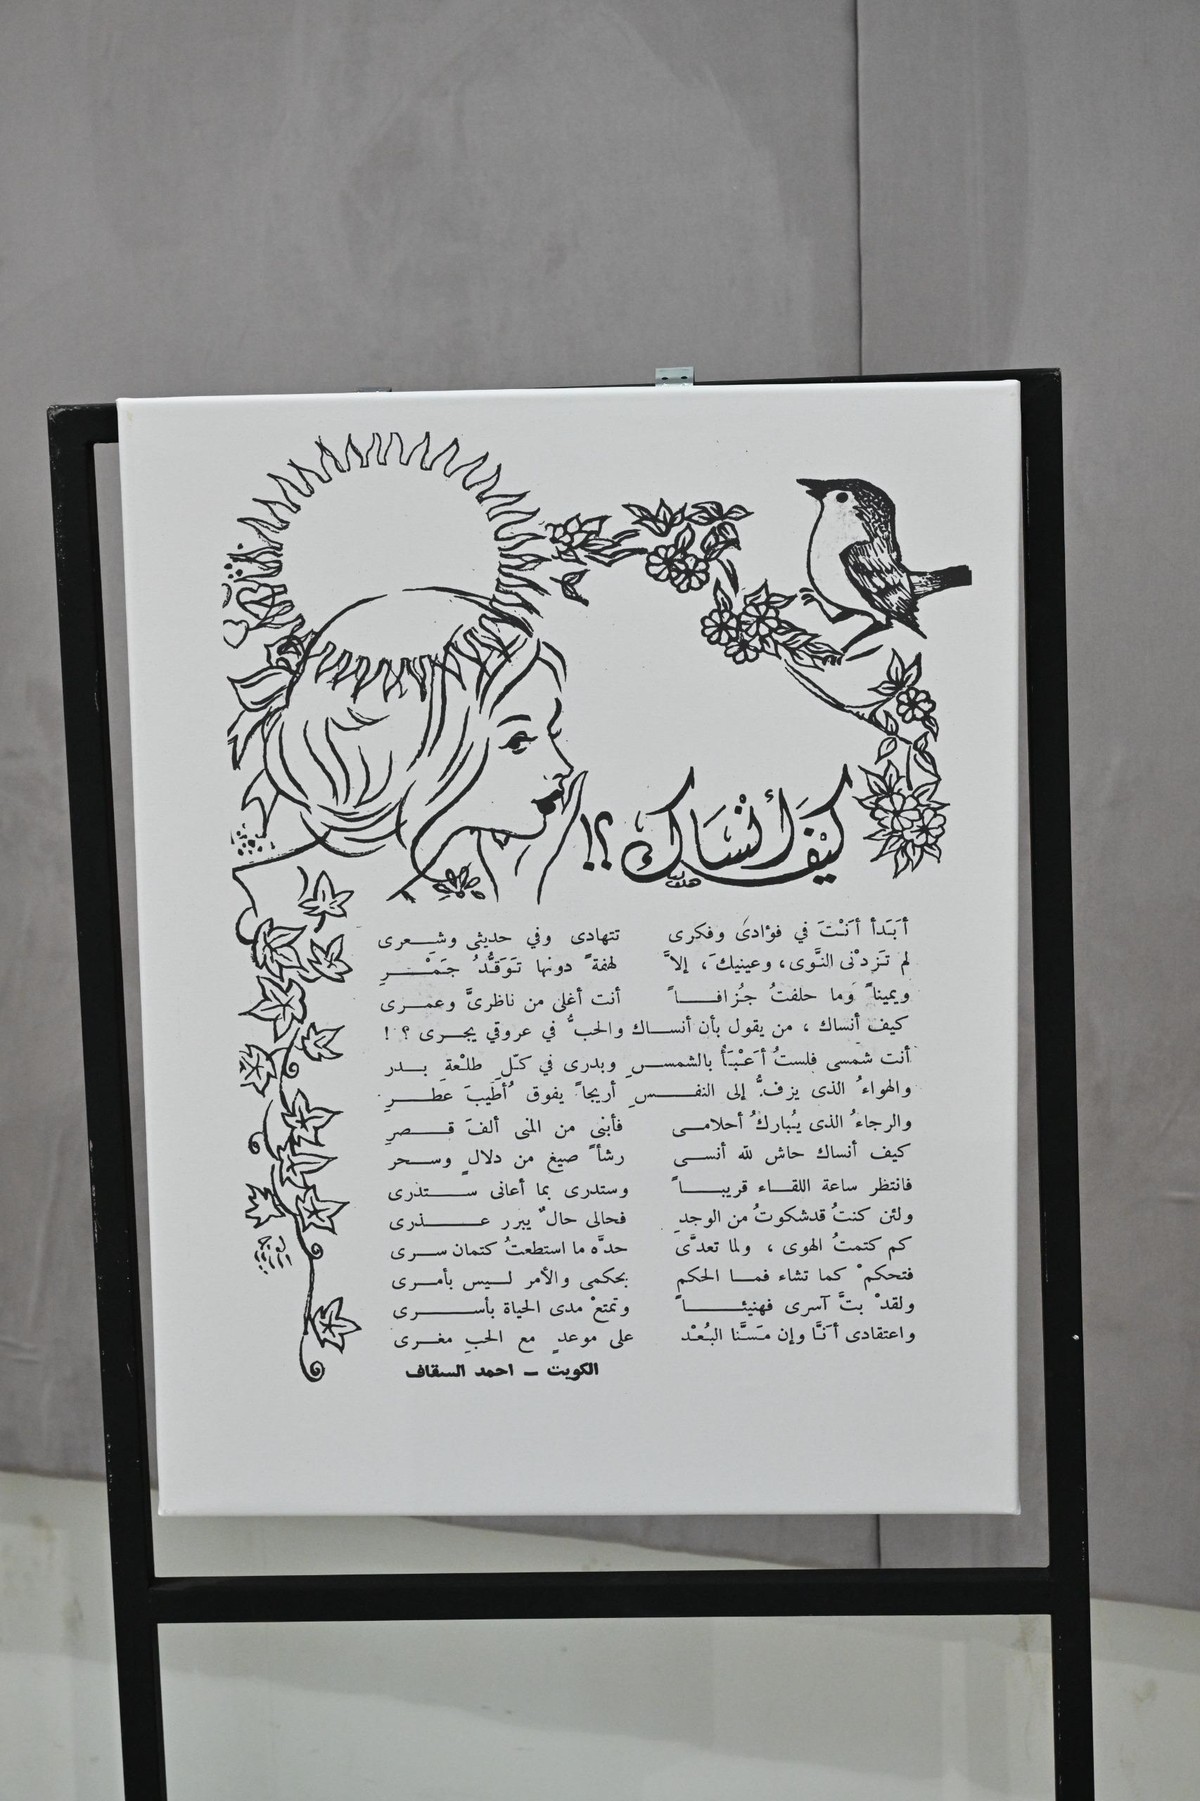 كيف أنساك ؟!
أبَدَاً أنْتَ في فؤادىَ وفكرى تتهادى وفي حديثى وشعرى
لم تَزِدْنى النَّوى، وعينيكَ، إلاَّ لهفةً دونها تَوَقُّدُ جَمْرِ
ويميناً وَما حلفتُ جُزافاً أنت أغلى من ناظرىَّ وعمرى
كيف أنساك ، من يقول بأن أنساك والحبُّ في عروقي يجرى ؟ !
أنت شمسى فلستُ أعْبَأُ بالشمسِ وبدرى في كلّ طلْعةِ بدر
والهواءُ الذى يزفُّ إلى النفسِ أريجاً يفوق أطيبَ عطرِ
والرجاءُ الذى يُباركُ أحلامى فأبنى من المنى ألفَ قصرِ
كيف أنساك حاش لله أنسى رشأً صيغ من دلالٍ وسحر
فانتظر ساعة اللقاء قريباً وستدرى بما أعانى ستدرى
ولئن كنتُ قدشكوتُ من الوجدِ فحالى حالٌ يبرر عذرى
كم كتمتُ الهوى ، ولما تعدَّى حدَّه ما استطعتُ كتمان سرى
فتحكمْ كما تشاء فما الحكم بحكمى والأمر ليس بأمرى
ولقدْ بتَّ آسرى فهنيئاً وتمتعْ مدى الحياة بأسرى
واعتقادى أنَّا وإن مَسَّنا البُعْد على موعدٍ مع الحبِ مغرى
الكويت ــ احمد السقاف